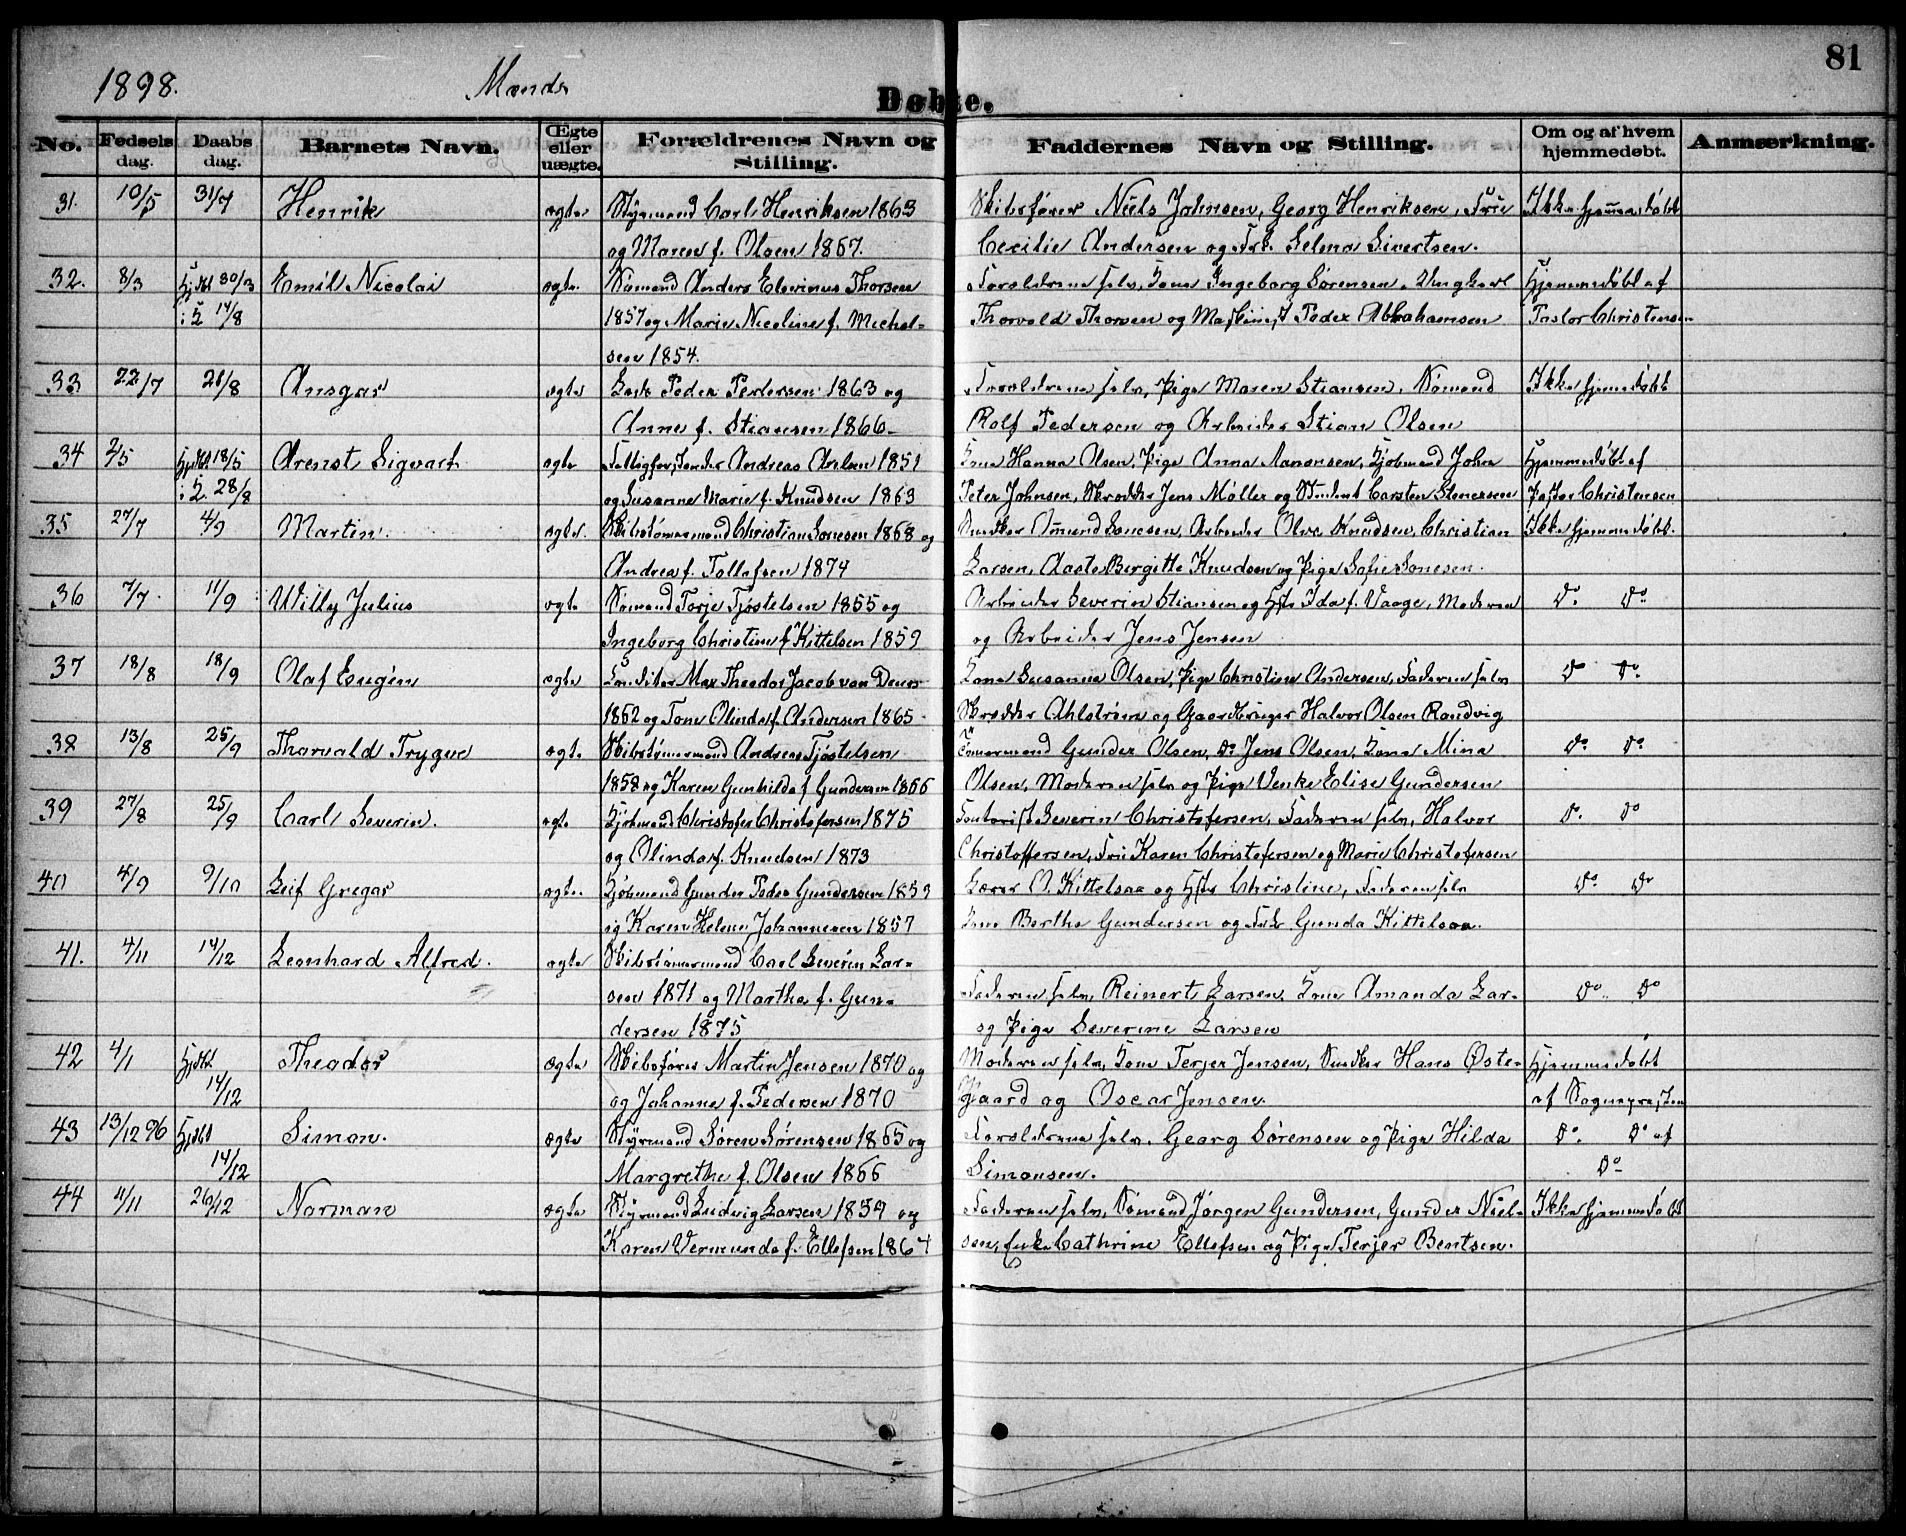 81
1898. Mænds
Døbte.
No. Fødsels dag. Daabs dag. Barnets Navn. Ægte eller uægte. Forældrenes Navn og Stilling. Faddernes Navn og Stilling. Om og af hvem hjemmedøbt. Anmærkning.
31. 10/5 31/7 Henrik ægte Styrmand Carl Henriksen 1863 Skibsfører Niels Johnsen, Georg Henriksen, Frü Ikke hjemmedøbt
og Maren f. Olsen 1867. Cecilie Andersen og Frk. Selma Sivertsen.
32. 8/3 Hjdbt 30/3 Emil Nicolai ægte. Sømand Anders Elevinus Thorsen Forældrene selv, Kone Ingeborg Sørensen, Ungkarl Hjemmedøbt af
i K 14/8 1857 og Marie Nicoline f. Michel- Thorvald Thorsen og Maskinist Peder Abrahamsen Pastor Christensen
sen 1854.
33 22/7 21/8 Ansgar ægte Lods Peder Pedersen 1863 og Forældrene selv, Pige Maren Stiansen, Sømand Ikke hjemmedøbt
Anne f. Stiansen 1866- Rolf Pedersen og Arbeider Stian Olsen
34 2/5 Hjdbt 18/5 Arenst Sigvart ægte Fattigforstander Andreas Arelsen 1851 Kone Hanna Olsen, Pige Anna Aanonsen, Kjøbmand John Hjemmedøbt af
i K. 28/8 og Susanne Marie f. Knudsen 1863 Peter Johnsen, Skrædder Jens Møller og Student Carsten Stenersen Pastor Christensen
35 27/7 4/9 Martin. ægte. Skibstømmermand Christian Sonesen 1868 og Snedker Omund Sonesen, Arbeider Olve Knudsen, Christian Ikke hjemmedøbt.
Andrea f. Tollefsen 1874 Larsen, Aaste Birgitte Knudsen og Pige Sofie Sonesen.
36 7/7. 11/9 Willy Julius ægte Sømand Torje Tjøstelsen 1855 og Arbeider Severin Stiansen og Hst Ida f. Vaage, Moderen Do. Do.
Ingeborg Christine f. Kittelsen 1859 og Arbeider Jens Jensen
37 18/8 18/9 Olaf Eugén ægte Konditor Max Theodor Jacob van Deurs Kone Susanna Olsen, Pige Christine Andersen, Faderen selv Do Do.
1862 og Tone Olinde f. Andersen 1865- Skrædder Ahlstrøm og Gaardbruger Halvor Olsen Randvig
38 13/8 25/9 Tharvald Trygve ægte Skibstømmermand Andreas Tjøstelsen Tømmermand Gunder Olsen, Do Jens Olsen, Kone Mina Do. Do.
1858 og Karen Gunhilda f. Gundersen 1866 Olsen, Moderen selv og Pige Venke Elise Gundersen
39 27/8 25/9 Carl Severin. ægte Kjøbmand Christofer Christofersen 1875 Kontorist Severin Christofersen, Faderen selv, Halvor Do. Do
og Olinda f. Knudsen 1873 Christoffersen, Frü Karen Christofersen og Marie Christofersen
40 4/9 9/10 Leif Gregar ægte. Kjøbmand Gunder Peder Gundersen 1859 Lærer O. Kittelsaa og Hst Christine, Faderen selv Do. Do
og Karen Helene Johannesen 1857 Kone Berthe Gundersen og Frk Gunda Kittelsaa.
41. 4/11 14/12 Leonhard Alfred. ægte Skibstømmermand Carl Severin Lar-
sen 1871 og Martha f. Gun- Faderen selv, Reinert Larsen, Kone Amanda Lar- Do. Do
dersen 1875 og Pige Severine Larsen
42 4/1 Hjdbt Theodor ægte Skibsfører Martin Jensen 1870 og Moderen selv, Kone Terjer Jensen, Snedker Hans Øster- Hjemmedøbt
14/12 og Johanne f. Pedersen 1870 gaard og Oscar Jensen. af Sognepresten
43 13/12 96 Hjdbt Simon. ægte Styrmand Søren Sørensen 1865 og Forældrene selv, Georg Sørensen og Pige Hilda Do. Do af
14/12 Margrethe f. Olsen 1866 Simonsen. Do
44 4/11 26/12 Norman ægte Styrmand Ludvig Larsen 1859 og Faderen selv, Sømand Jørgen Gundersen, Gunder Niel- Ikke hjemmedøbt
Karen Vermunda f. Ellefsen 1864 sen, Enke Cathrine Ellefsen og Pige Terjer Bentsen.